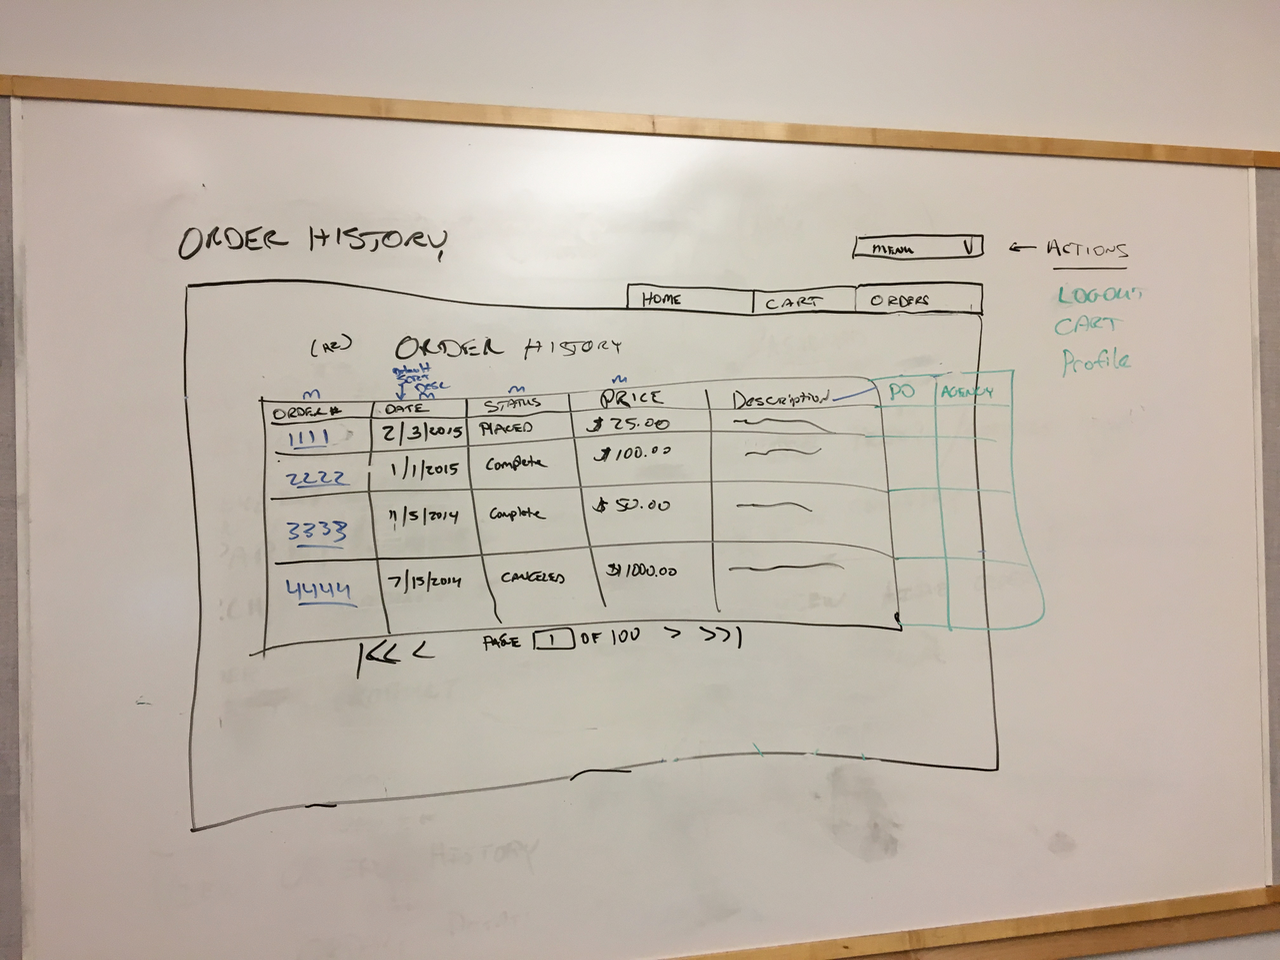 ORDER HISTORY
MENU V ← ACTIONS
LOGOUT
CART
Profile
HOME CART ORDERS
ORDER HISTORY
Default
SORT
DESC
ORDER # DATE STATUS PRICE Description PO AGENCY
1111 2/3/2015 PLACED $25.00
2222 1/1/2015 Complete $100.00
3333 11/5/2014 Complete $50.00
4444 7/15/2014 CANCELED $1000.00
|<< < PAGE 1 OF 100 > >>|